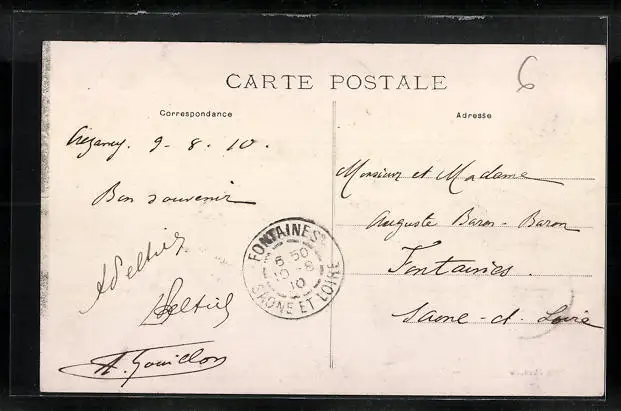 CARTE POSTALE
6
Correspondance
Crézancy. 9 - 8 - 10.
Bon souvenir
A Peltier
Peltier
A. Gouillon
Adresse
Monsieur et Madame
Auguste Baron - Baron
Fontaines.
Saone-et-Loire
FONTAINES
5 50
10 - 8
10
SAONE ET LOIRE